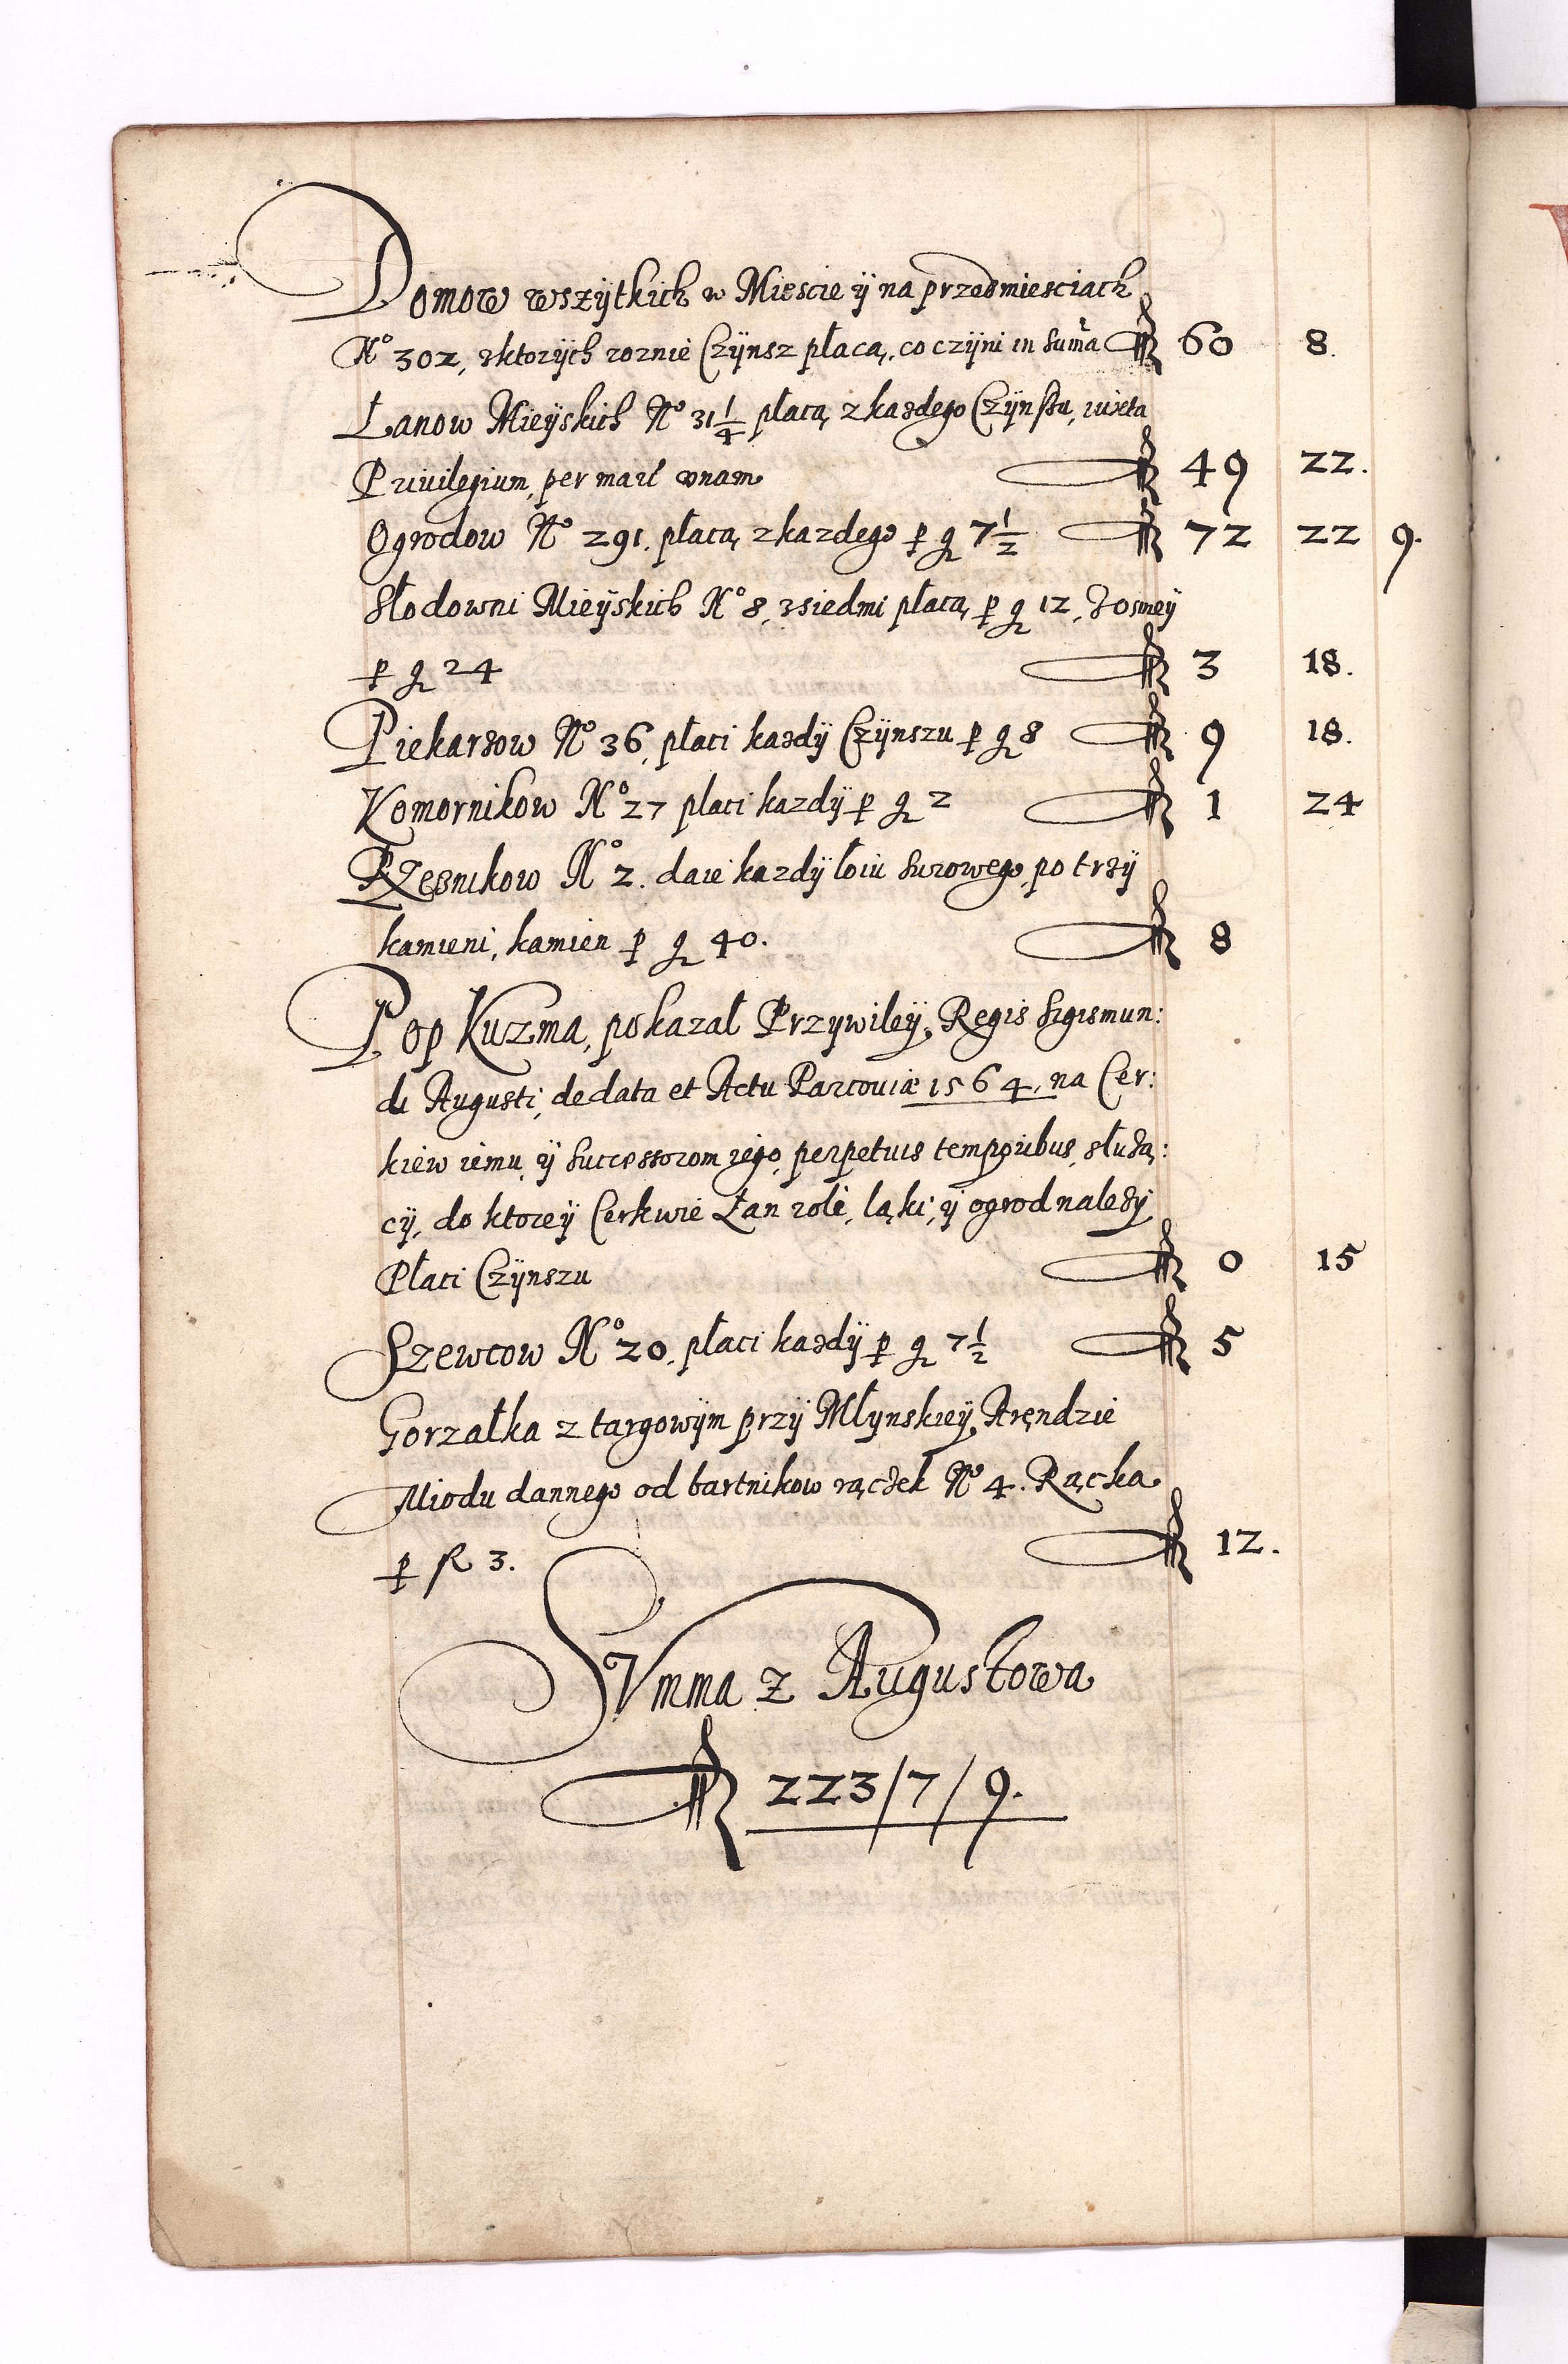 Domow wszÿtkich w Miescie ÿ na przedmiesciach
No 302, zktorÿch roznie Czÿnsz płacą, co czÿni in sum̃a fl 60 8.
Łanow Mieÿskich No 31 1/4 płacą z kazdego Czÿnszu, iuxta
Priuilegium, per mar̃ unam fl 49 22.
Ogrodow No 291. płacą z kazdego p gr 7 1/2 fl 72 22 9.
Słodowni Mieÿskich No 8, zsiedmi płacą p gr 12, Zosmeÿ
p gr 24 fl 3 18.
Piekarzow No 36, płaci kazdÿ Czÿnszu p gr 8 fl 9 18.
Komornikow No 27 płaci kazdÿ p gr 2 fl 1 24
Rzeznikow No 2. daie kazdÿ łoiu surowego po trzÿ
kamieni, kamien p gr 40. fl 8
Pop Kuzma, pokazał Przywileÿ, Regis Sigismun:
di Augusti, de data et Actu Parcouiæ 1564, na Cer:
kiew iemu, ÿ successorom iego, perpetuis temporibus, słuzą:
cÿ, do ktoreÿ Cerkwie Łan rolé, łąki, ÿ ogrod nalezÿ
Płaci Czÿnszu fl 0 15
Szewcow No 20, płaci kazdÿ p gr 7 1/2 fl 5
Gorzałka z targowÿm przÿ Młynskieÿ Aręndzie
Miodu dannego od bartnikow rączek No 4. Rączka
p fl 3. fl 12.
SVmma z Augustowa
fl 223/7/9.